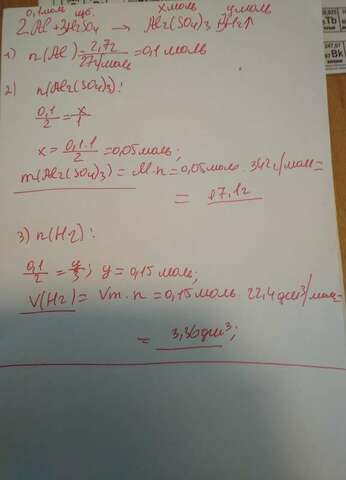 0,1моль изб. xмоль yмоль
2Al+3H₂SO₄ → Al₂(SO₄)₃+3H₂↑
1) n(Al)=2,7г/27г/моль=0,1 моль
2) n(Al₂(SO₄)₃):
0,1/2=x/1
x=0,1·1/2=0,05моль;
m(Al₂(SO₄)₃)=M·n=0,05моль·342г/моль=
=17,1г
3) n(H₂):
0,1/2=y/3; y=0,15моль;
V(H₂)=Vm·n=0,15моль·22,4дм³/моль=
=3,36дм³;
Tb
247,07
Bk